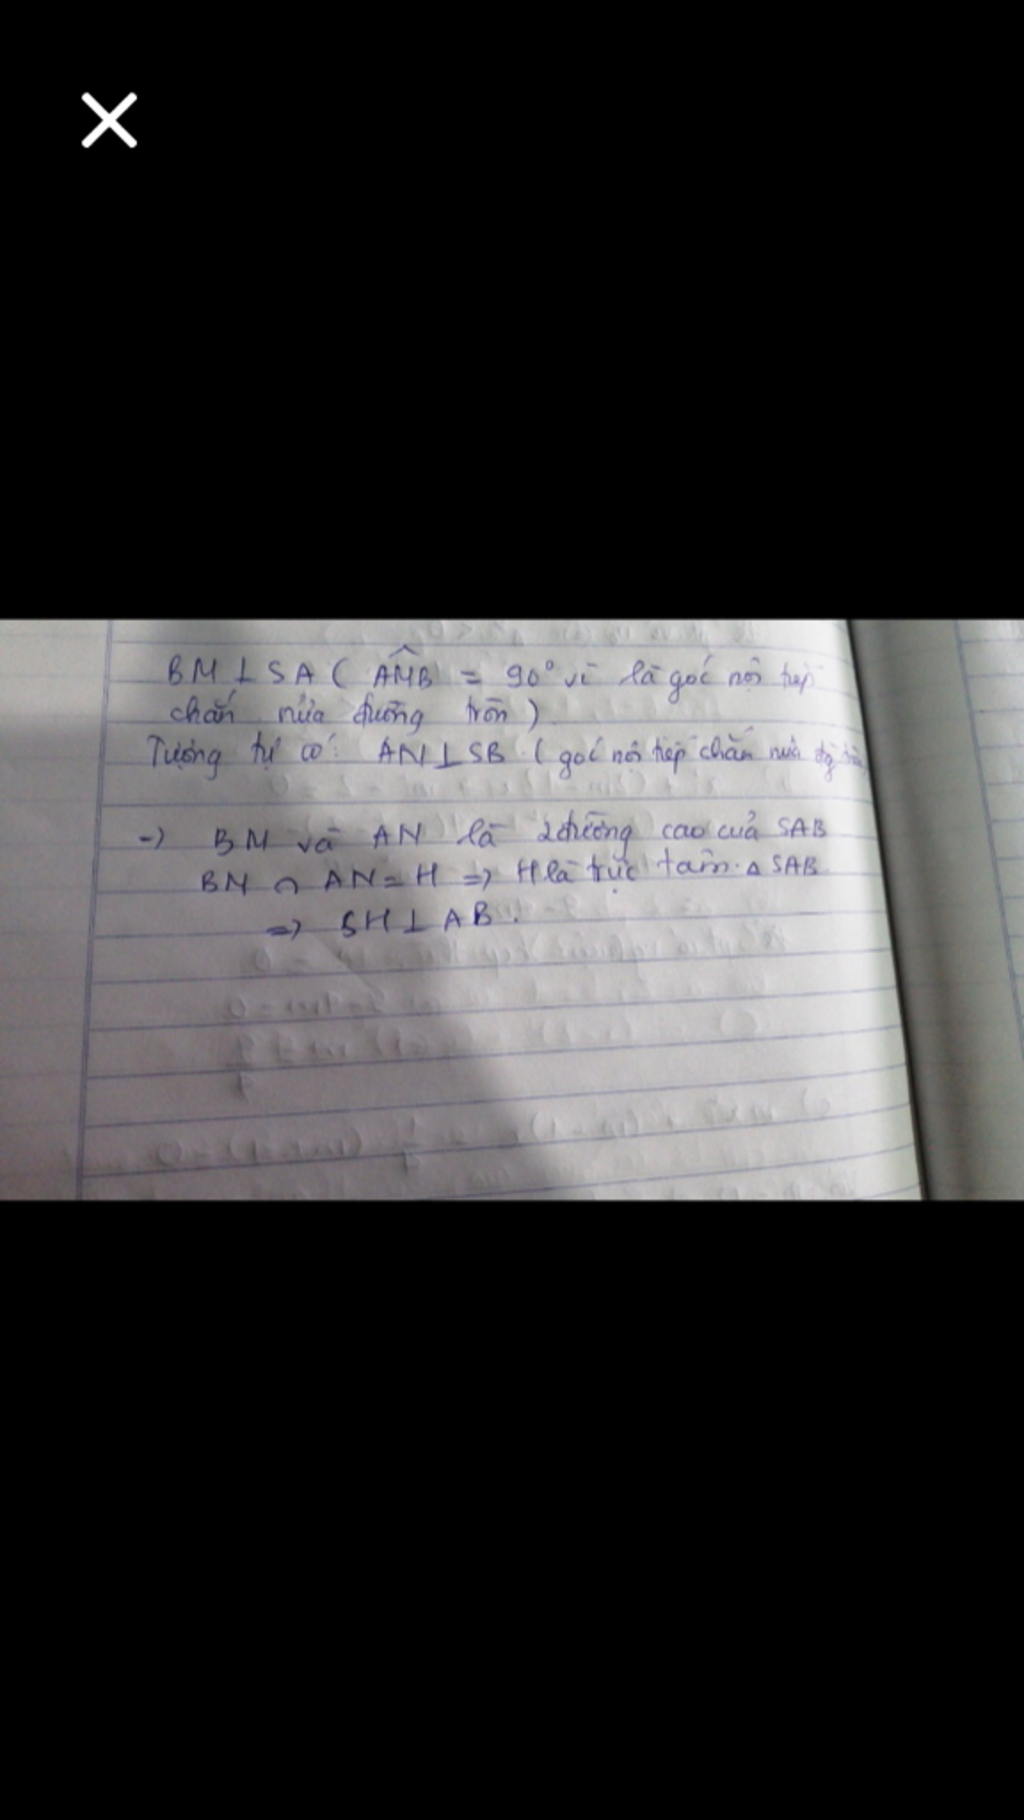 BM ⊥ SA ( AMB = 90° vì là góc nội tiếp
chắn nửa đường tròn )
Tương tự có: AN ⊥ SB ( góc nội tiếp chắn nửa
-> BM và AN là 2 đường cao của SAB
BM ∩ AN = H => H là trực tâm Δ SAB
=> SH ⊥ AB.